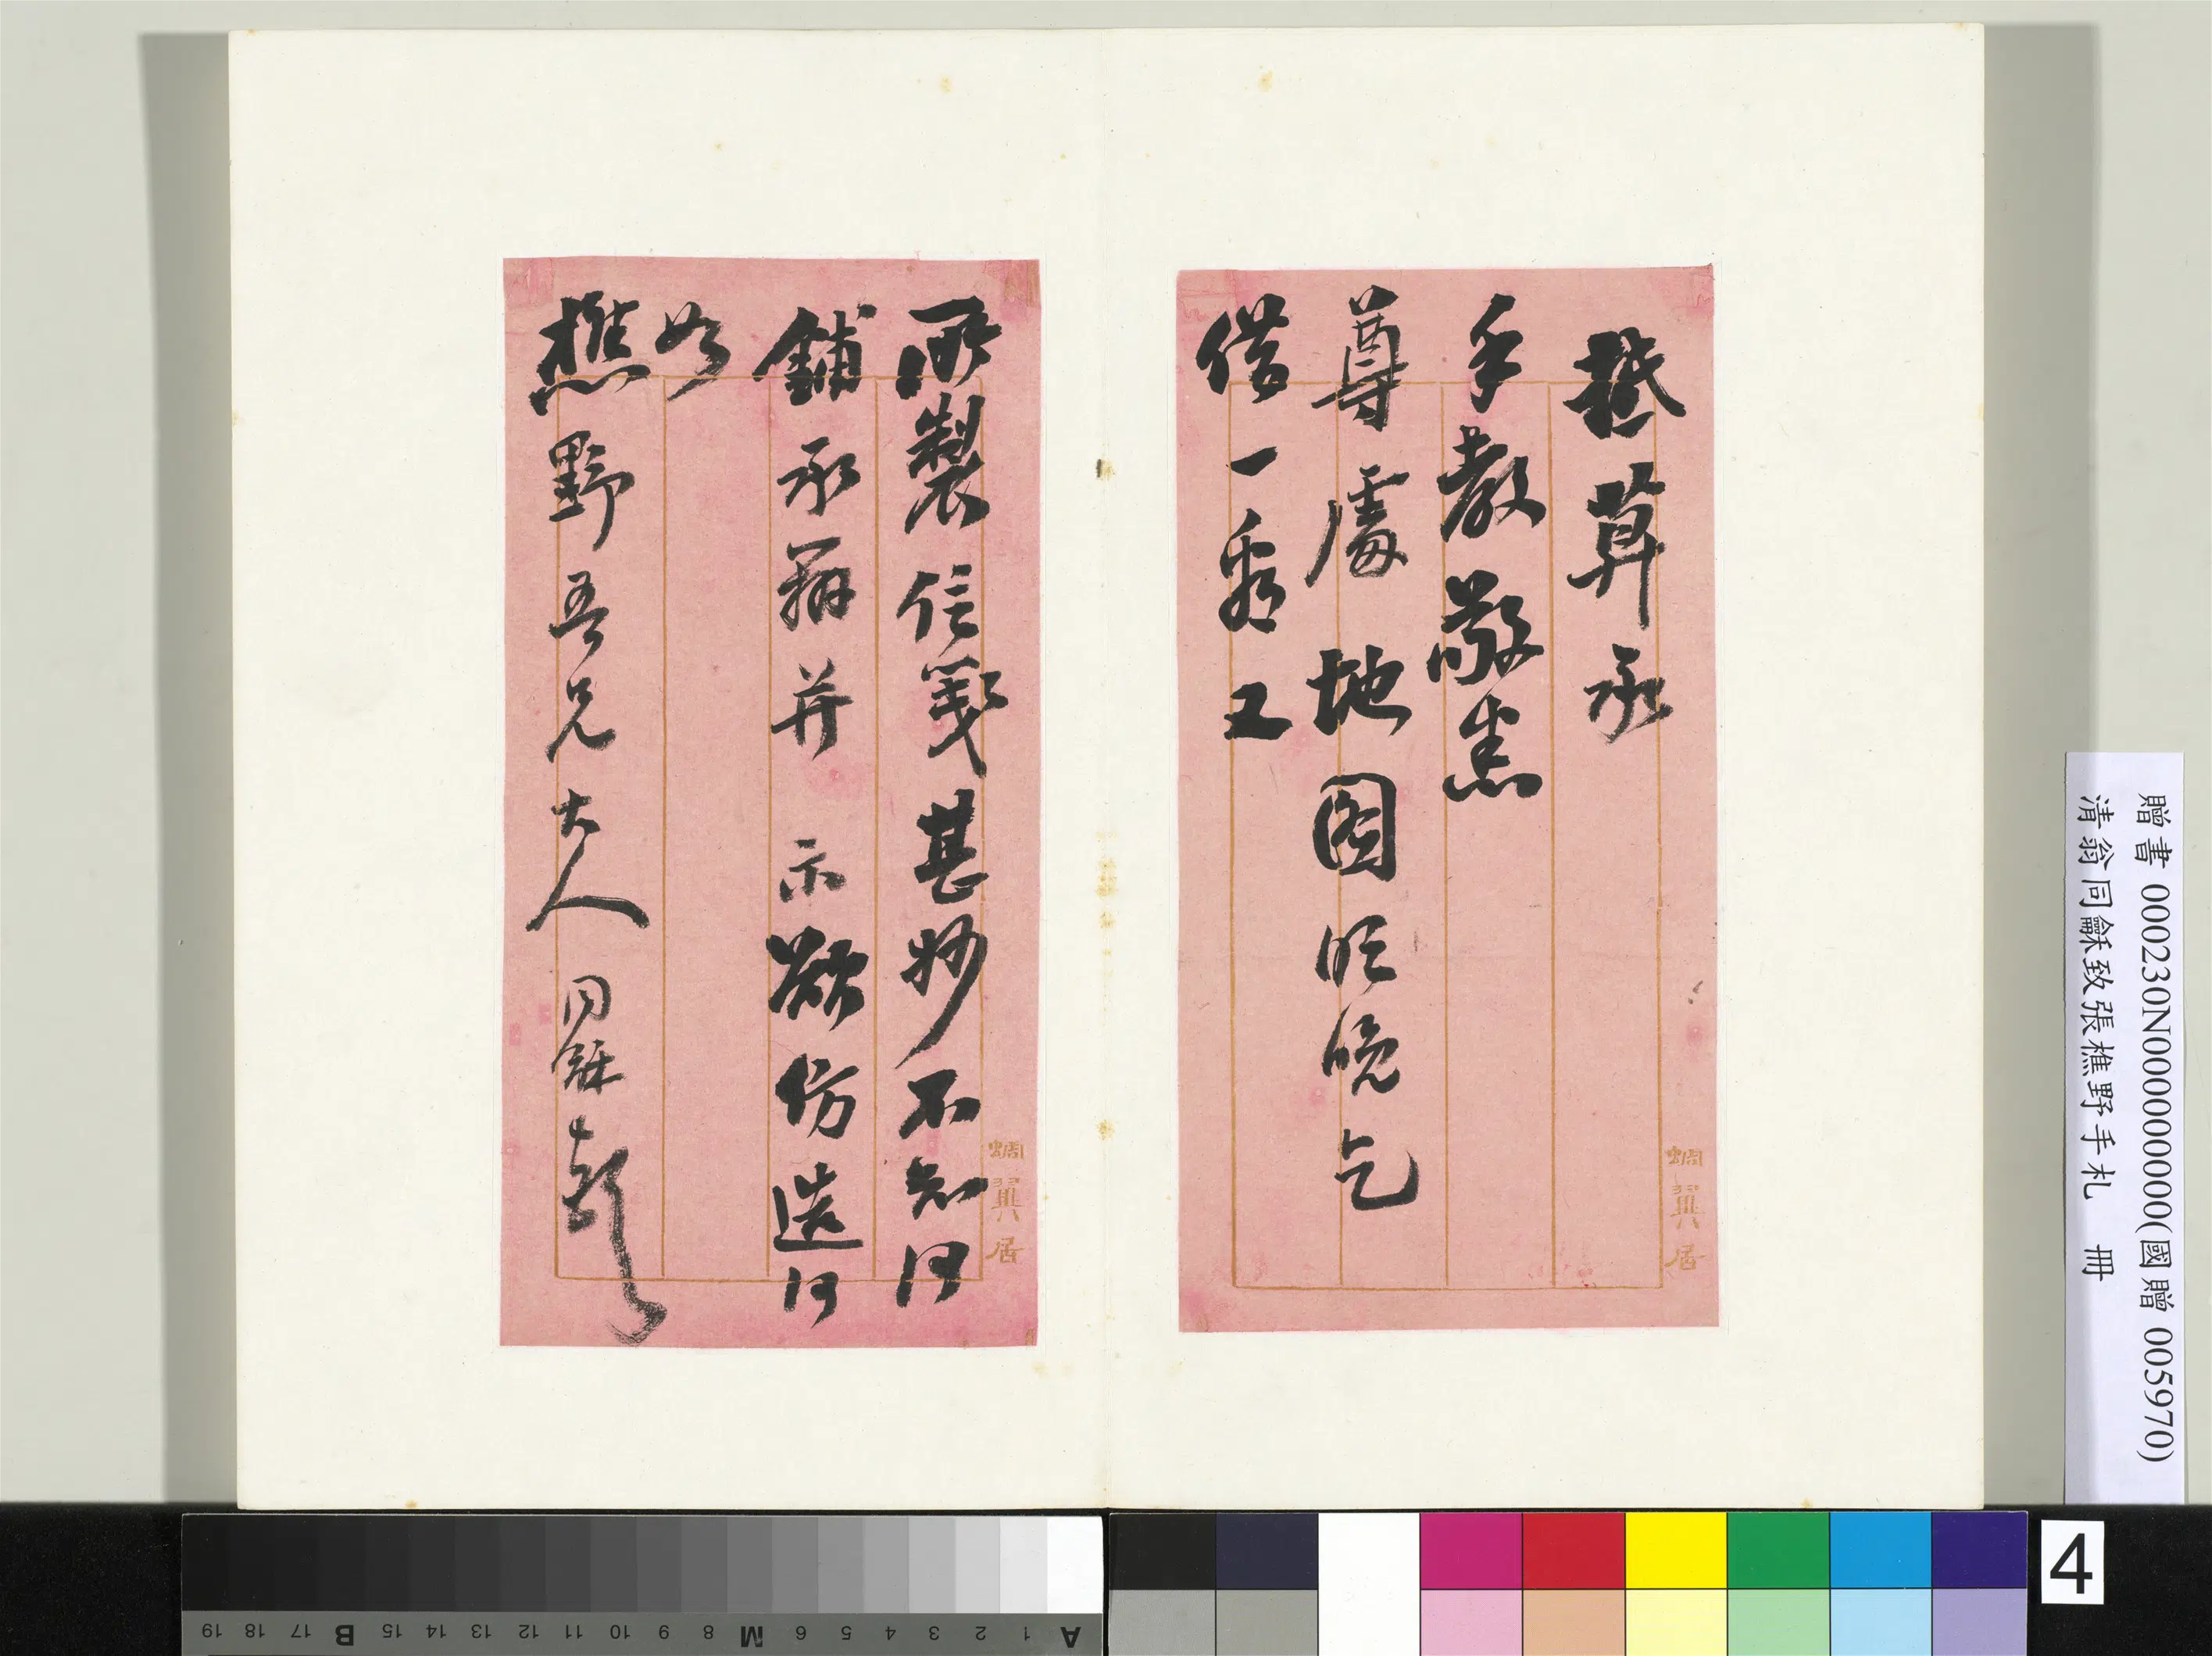 承
手教敬悉
尊處地圖明晚乞
借一看又
蜩翼居
所製信箋甚妙不知何
鋪承辦并 示欲仿造何
如
樵野吾兄大人 同龢頓
蜩翼居
贈書 000230N000000000(國贈 005970)
清翁同龢致張樵野手札 冊
19 18 17 B 15 14 13 12 11 10 9 8 M 6 5 4 3 2 1 A
4